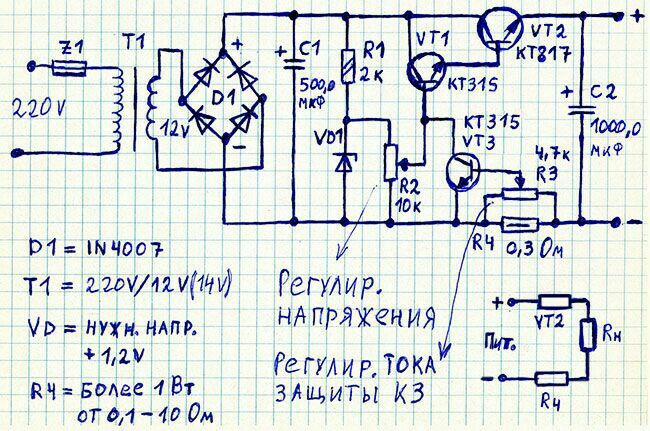 Z1
T1
220V
12V
+
D1
-
+
C1
500,0
мкФ
R1
2к
VD1
R2
10к
VT1
КТ315
VT2
КТ817
КТ315
VT3
4,7к
R3
R4
0,3 Ом
+
C2
1000,0
мкФ
+
-
D1 = IN4007
T1 = 220V/12V(14V)
VD = нужн. напр.
+ 1,2V
R4 = Более 1 Вт
от 0,1 - 10 Ом
Регулир.
напряжения
Регулир. тока
защиты КЗ
+
VT2
Пит.
Rн
-
R4